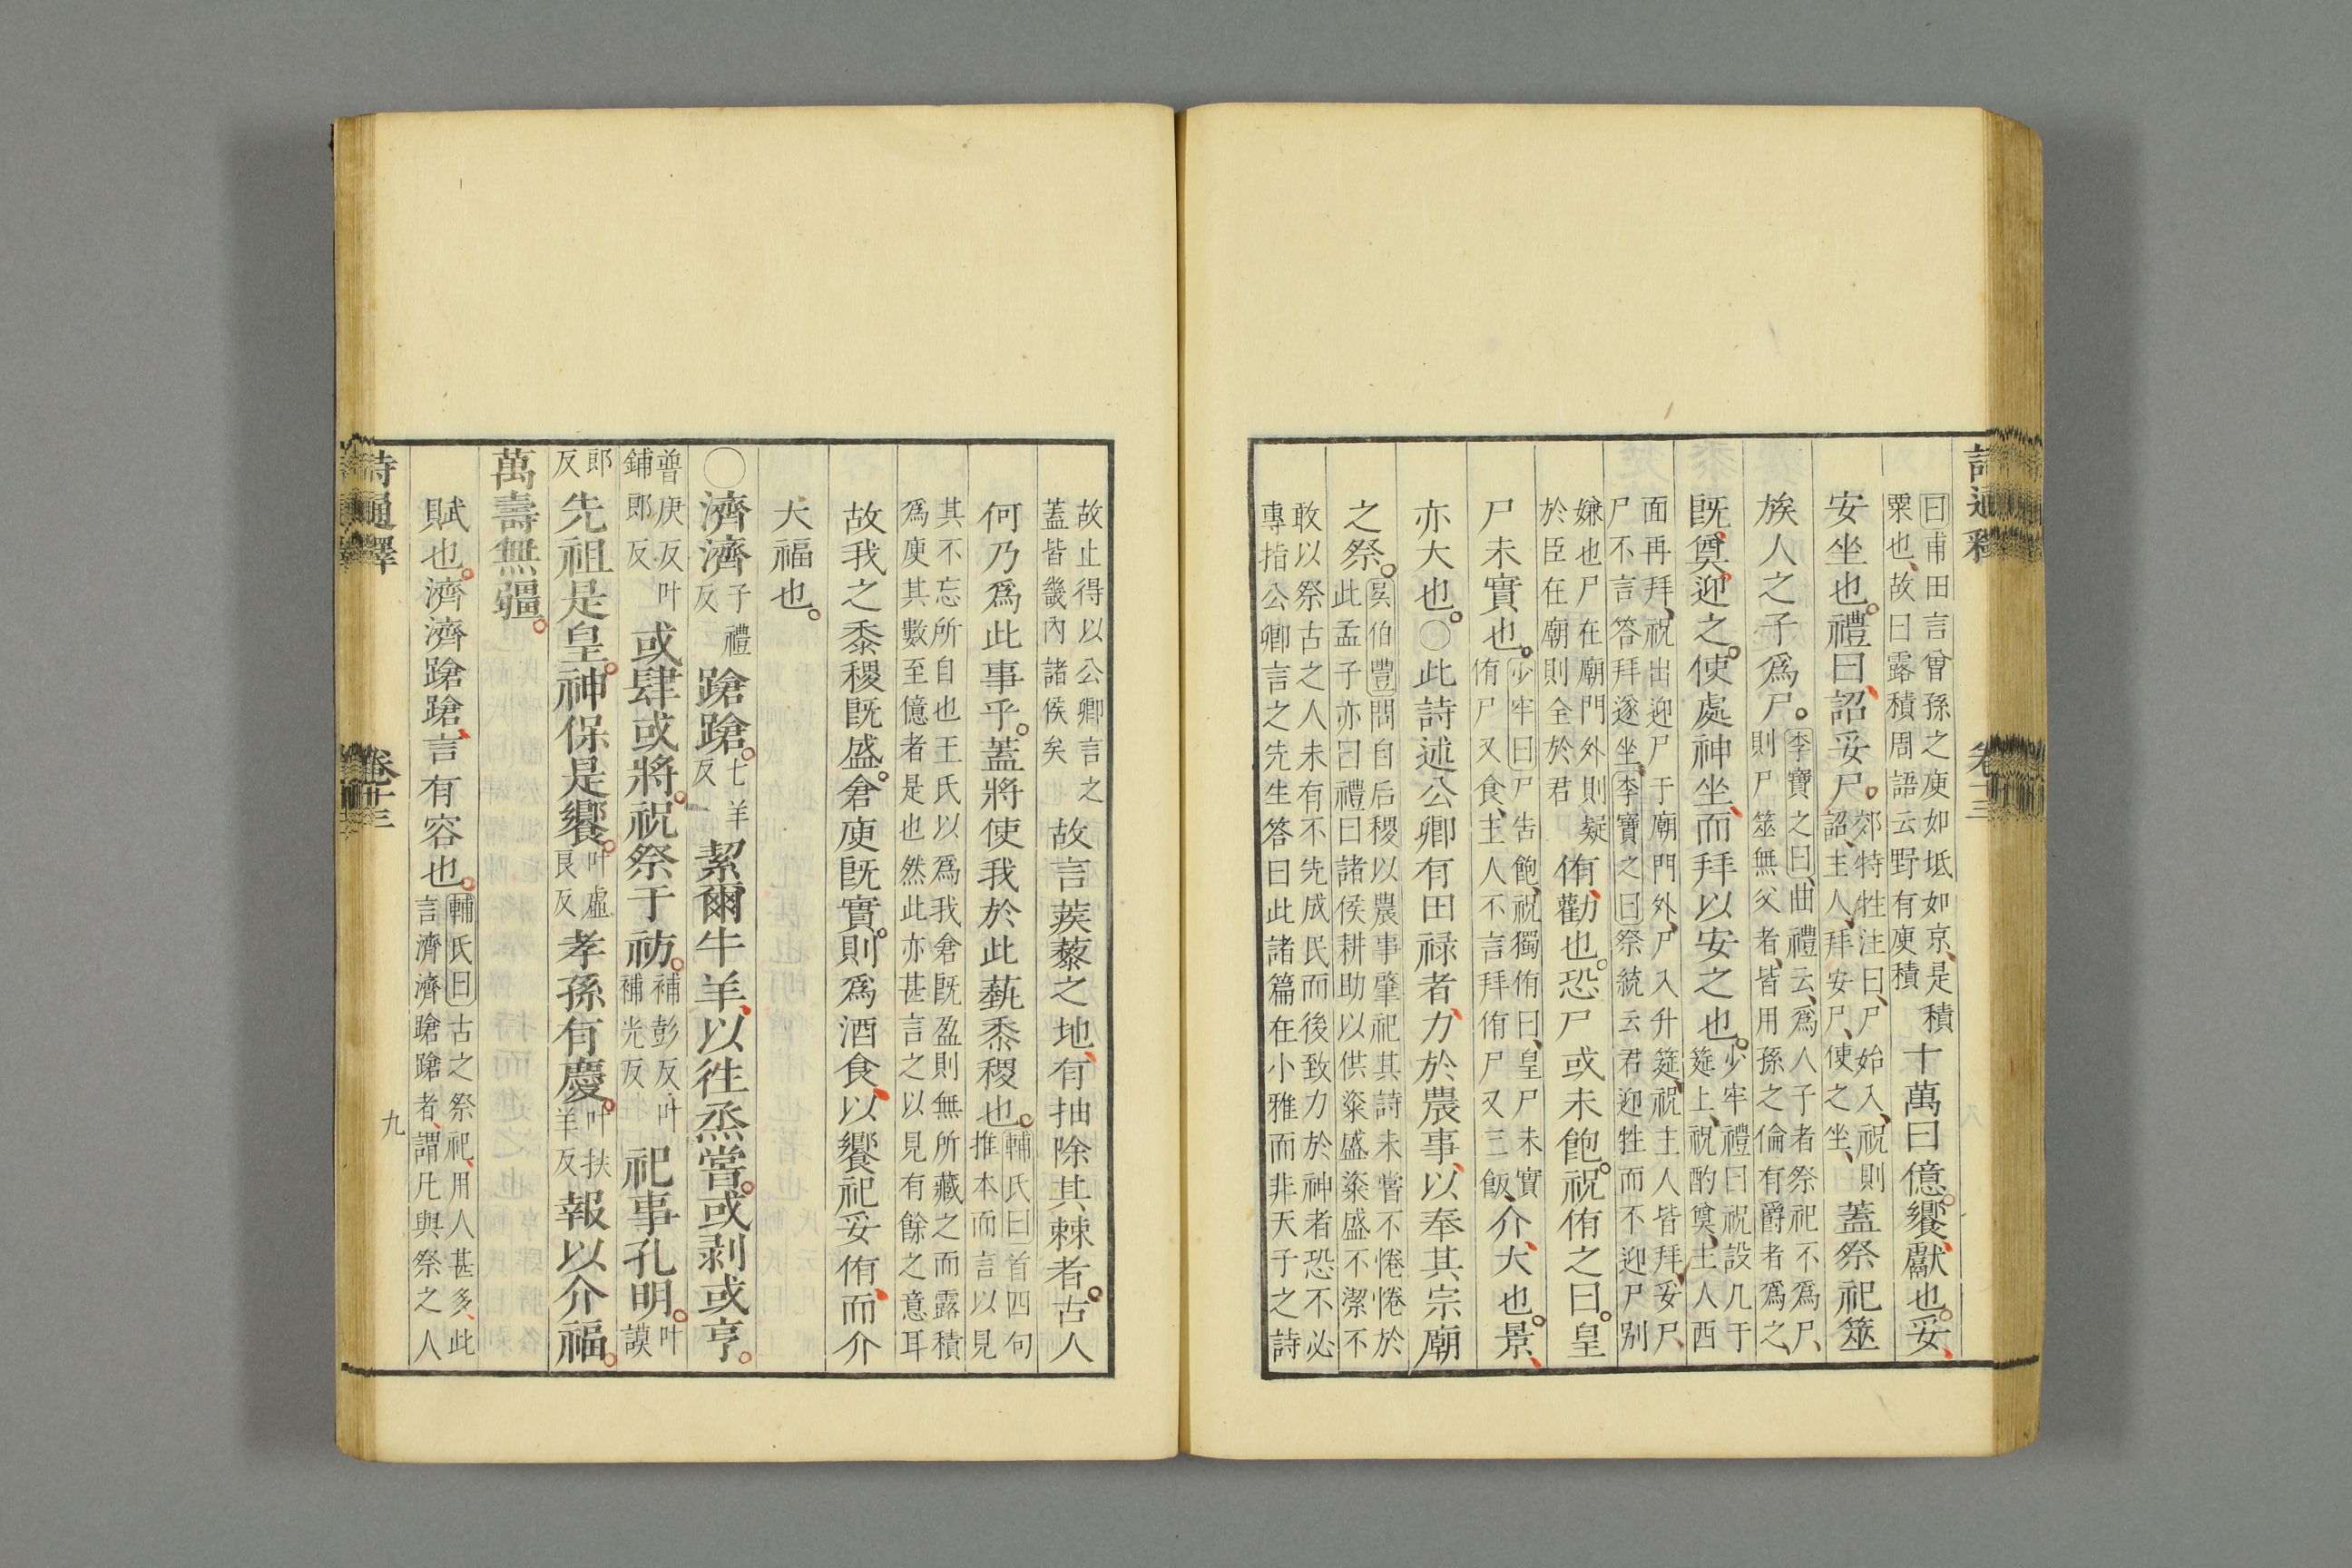 詩通釋 卷十三
曰甫田言曾孫之庾如坻如京是積
粟也故曰露積周語云野有庾積
十萬曰億饗獻也妥
安坐也禮曰詔妥尸
郊特牲注曰尸始入祝則
詔主人拜安尸使之坐
蓋祭祀筮
族人之子爲尸
李寶之曰曲禮云爲人子者祭祀不爲尸
則尸筮無父者皆用孫之倫有爵者爲之
既奠迎之使處神坐而拜以安之也
少牢禮曰祝設几于
筵上祝酌奠主人西
面再拜祝出迎尸于廟門外尸入升筵祝主人皆拜妥尸
尸不言答拜遂坐李寶之曰祭統云君迎牲而不迎尸别
嫌也尸在廟門外則疑
於臣在廟則全於君
侑勸也恐尸或未飽祝侑之曰皇
尸未實也
少牢曰尸告飽祝獨侑曰皇尸未實
侑尸又食主人不言拜侑尸又三飯
介大也景
亦大也○此詩述公卿有田禄者力於農事以奉其宗廟
之祭
吳伯豐問自后稷以農事肇祀其詩未嘗不惓惓於
此孟子亦曰禮曰諸侯耕助以供粢盛粢盛不潔不
敢以祭古之人未有不先成民而後致力於神者恐不必
專指公卿言之先生答曰此諸篇在小雅而非天子之詩
故止得以公卿言之
蓋皆畿內諸侯矣
故言蒺藜之地有抽除其棘者古人
何乃爲此事乎蓋將使我於此蓺黍稷也
輔氏曰首四句
推本而言以見
其不忘所自也王氏以爲我倉既盈則無所藏之而露積
爲庾其數至億者是也然此亦甚言之以見有餘之意耳
故我之黍稷既盛倉庾既實則爲酒食以饗祀妥侑而介
大福也
○濟濟
子禮
反
蹌蹌
七羊
反
絜爾牛羊以往烝嘗或剥或亨
普庚反叶
鋪郎反
或肆或將祝祭于祊
補彭反叶
補光反
祀事孔明
叶
謨
郎
反
先祖是皇神保是饗
叶虛
良反
孝孫有慶
叶扶
羊反
報以介福
萬壽無疆
賦也濟濟蹌蹌言有容也
輔氏曰古之祭祀用人甚多此
言濟濟蹌蹌者謂凡與祭之人
詩通釋 卷十三 九